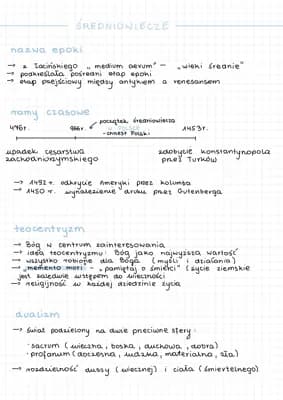 ŚREDNIOWIECZE
nazwa epoki
→ z łacińskiego „medium aevum" - „wieki średnie"
→ podkreślała pośredni etap epoki
→ etap przejściowy między antykiem a renesansem
ramy czasowe
początek średniowiecza
476r. 966r. w Polsce 1453r.
-chrzest Polski
upadek cesarstwa zdobycie Konstantynopola
zachodniorzymskiego przez Turków
→ 1492 r. odkrycie Ameryki przez Kolumba
→ 1450 r. wynalezienie druku przez Gutenberga
teocentryzm
→ Bóg w centrum zainteresowania
→ idea teocentryzmu: Bóg jako najwyższa wartość
→ wszystko robione dla Boga (myśli i działania)
→ „memento mori" - „pamiętaj o śmierci" (życie ziemskie
jest zaledwie wstępem do wieczności)
→ religijność w każdej dziedzinie życia
dualizm
→ świat podzielony na dwie przeciwne sfery:
·sacrum (wieczna, boska, duchowa, dobra)
·profanum (doczesna, ludzka, materialna, zła)
→ rozdzielność duszy (wiecznej) i ciała (śmiertelnego)